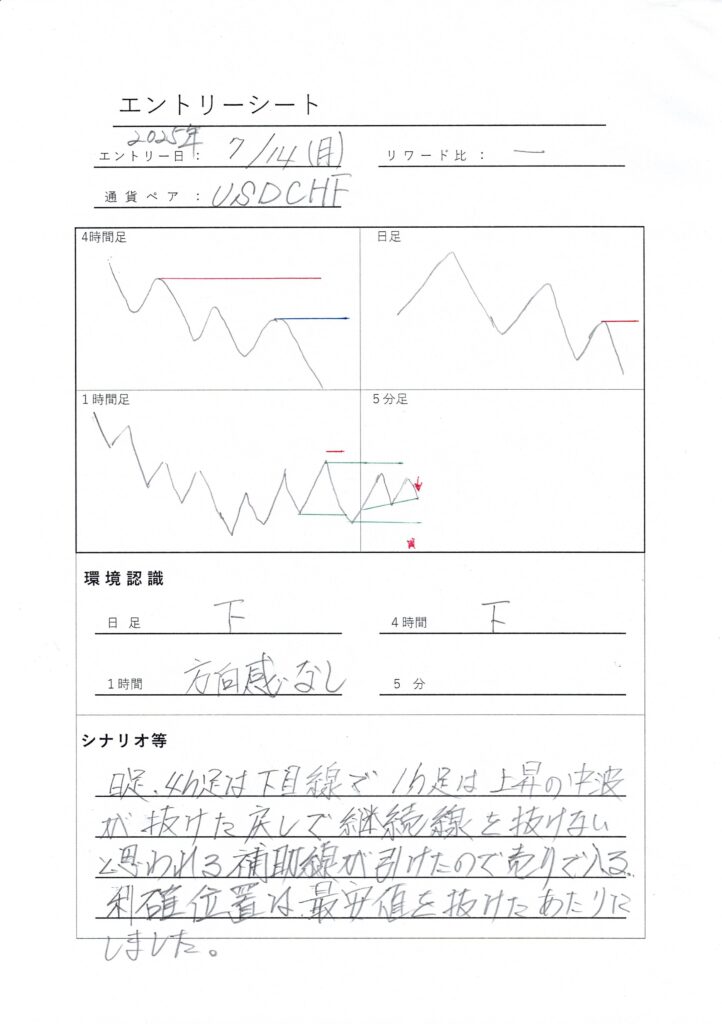 エントリーシート
2025年
エントリー日： 7/14(月)
リワード比： ー
通貨ペア： USDCHF
4時間足
日足
1時間足
5分足
環境認識
日足 下
4時間 下
1時間 方向感なし
5分
シナリオ等
日足、4h足は下目線で1h足は上昇の中波
が抜けた戻しで継続線を抜けない
と思われる補助線が引けたので売りで入る。
利確位置は、最安値を抜けたあたりに
しました。